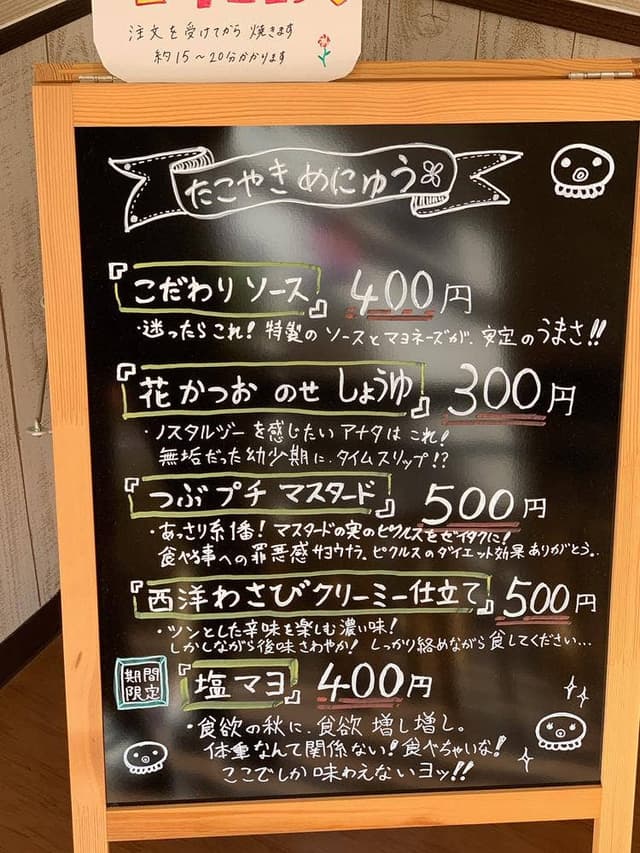 注文を受けてから焼きます
約15〜20分かかります
たこやきめにゅう
『こだわりソース』 400円
・迷ったらこれ！特製のソースとマヨネーズが、安定のうまさ!!
『花かつおのせしょうゆ』 300円
・ノスタルジーを感じたいアナタはこれ！
無垢だった幼少期に、タイムスリップ!?
『つぶプチマスタード』 500円
・あっさり系1番！マスタードの実のピクルスをゼイタクに！
食べる事への罪悪感サヨウナラ。ピクルスのダイエット効果ありがとう。
『西洋わさびクリーミー仕立て』 500円
・ツンとした辛味を楽しむ濃い味！
しかしながら後味さわやか！しっかり絡めながら食してください…
期間
限定
『塩マヨ』 400円
・食欲の秋に、食欲増し増し。
体重なんて関係ない！食べちゃいな！
ここでしか味わえないヨッ!!